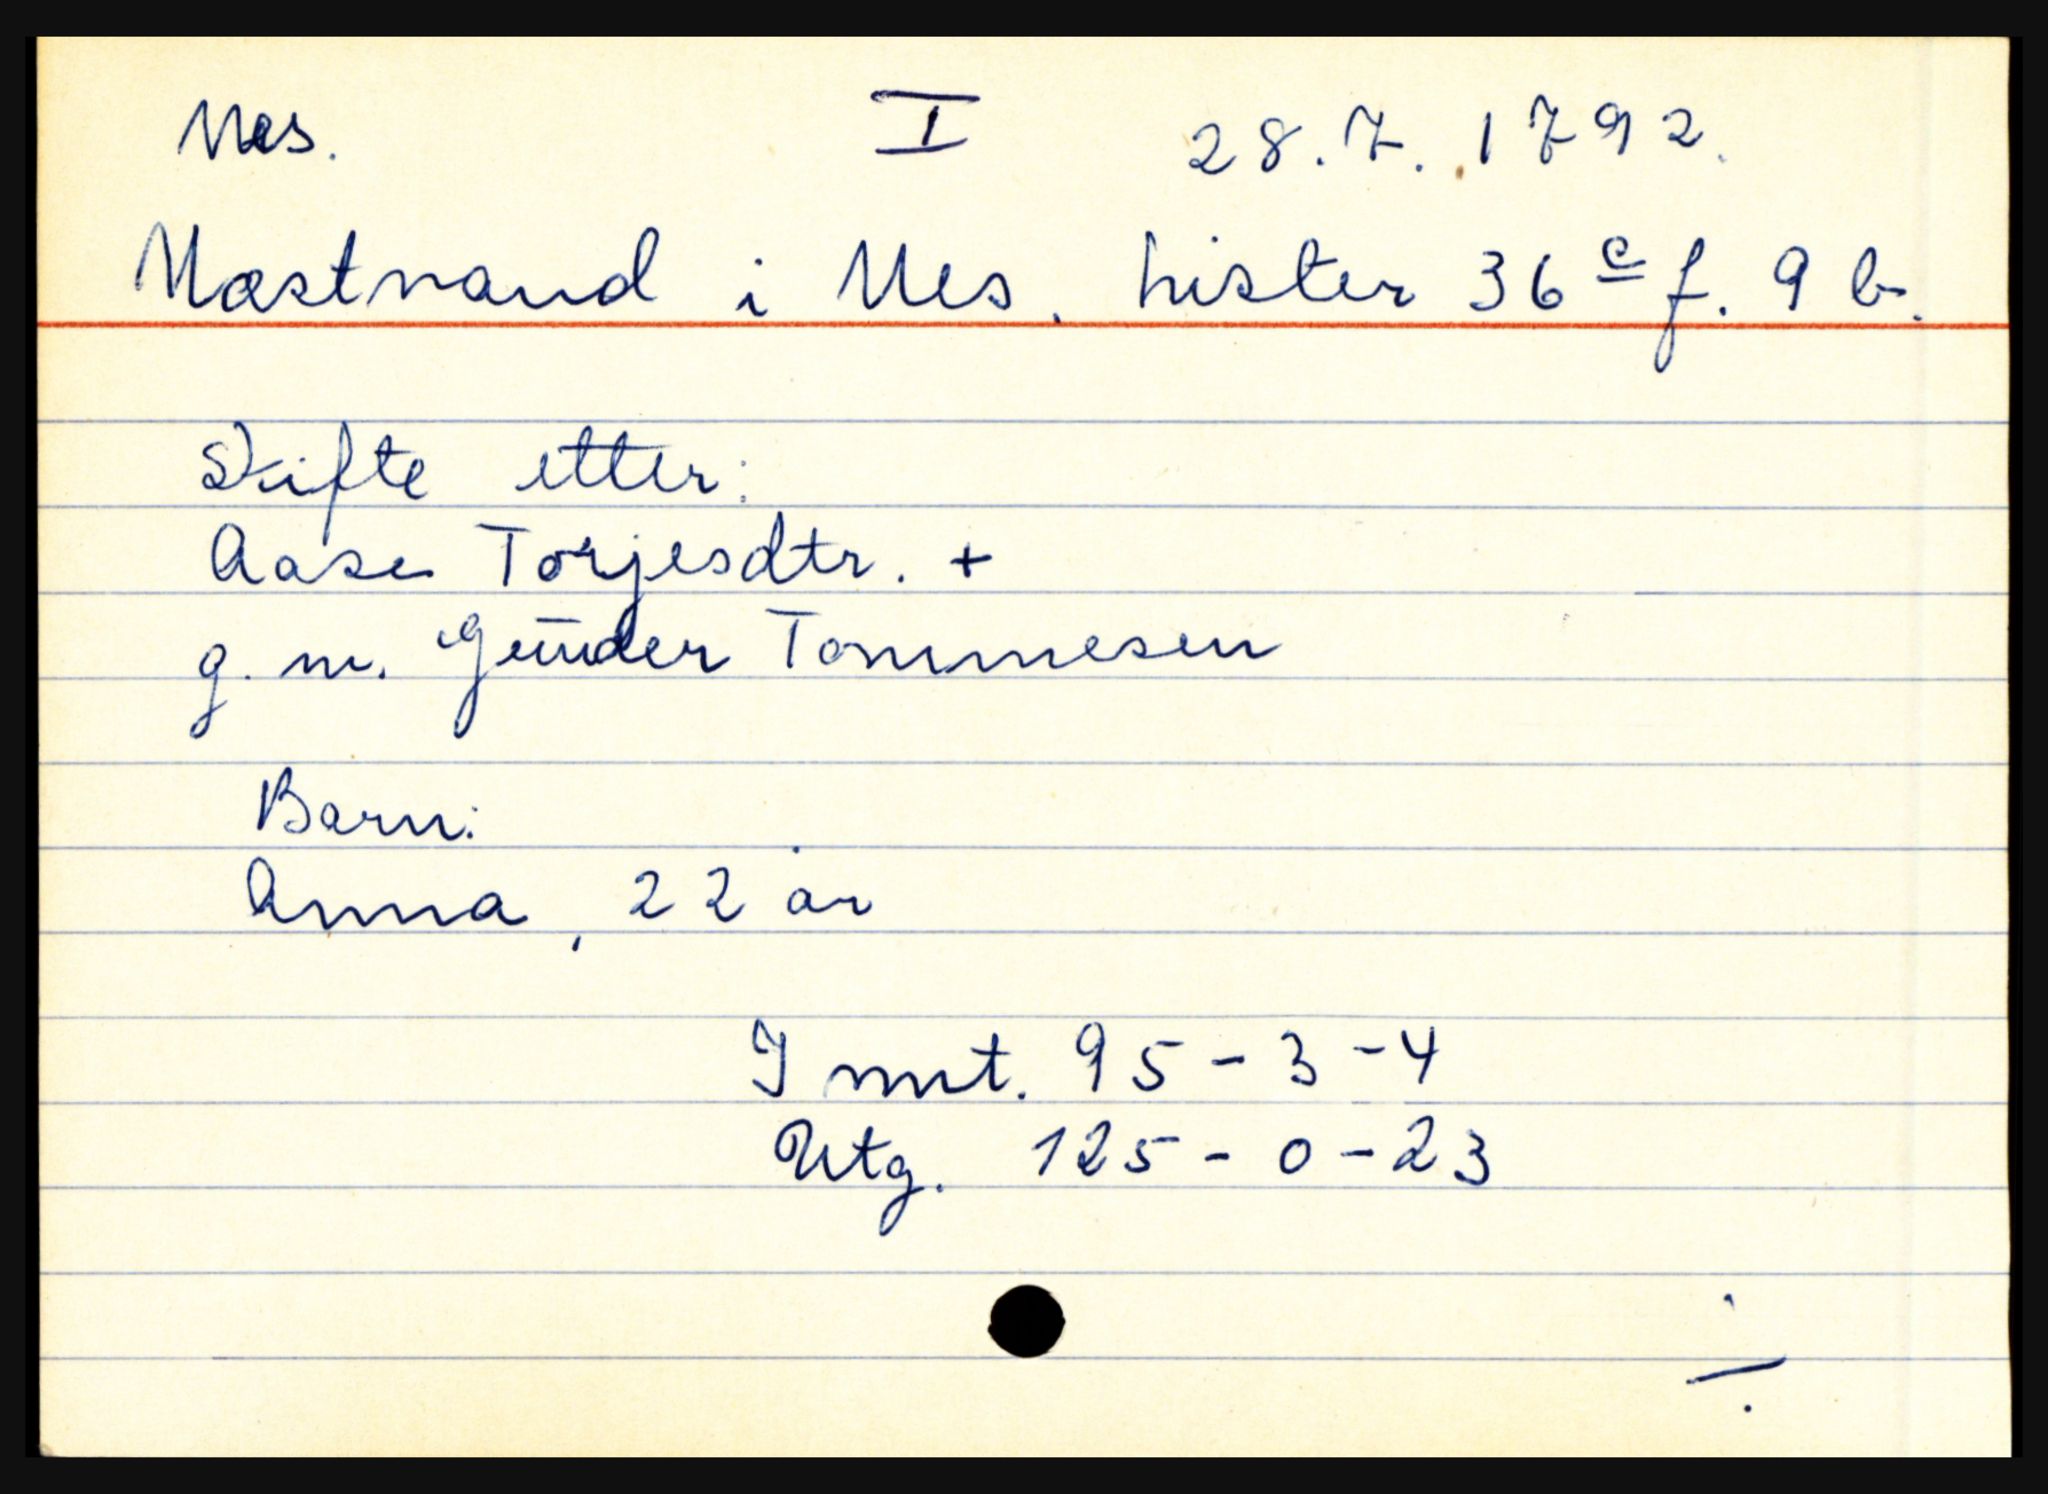 Nes. I 28.7.1792.
Næstvand i Nes. Lister 36 c f. 9 b.
Skifte etter:
Aase Torjesdtr. +
g. m. Gunder Tommesen
Barn:
Anna, 22 år
Innt. 95-3-4
Utg. 125-0-23